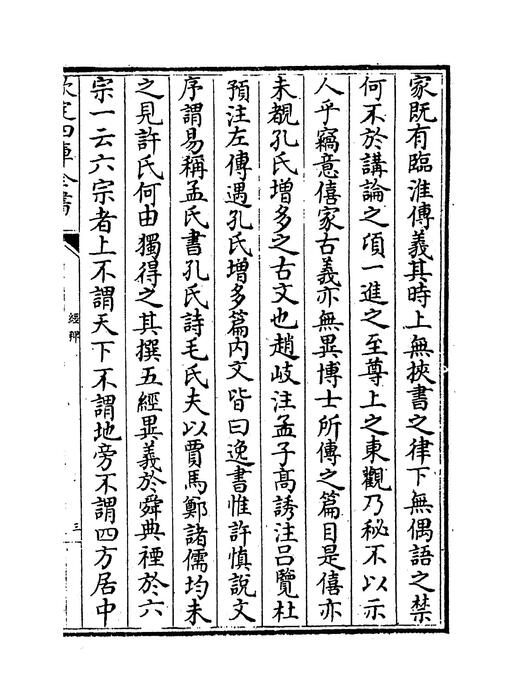 家既有臨淮傳義其時上無挾書之律下無偶語之禁
何不於講論之頃一進之至尊上之東觀乃秘不以示
人乎竊意僖家古義亦無異博士所傳之篇目是僖亦
未覩孔氏增多之古文也趙岐注孟子高誘注吕覽杜
預注左傳遇孔氏增多篇内文皆曰逸書惟許慎說文
序謂易稱孟氏書孔氏詩毛氏夫以賈馬鄭諸儒均未
之見許氏何由獨得之其撰五經異義於舜典禋於六
宗一云六宗者上不謂天下不謂地旁不謂四方居中
欽定四庫全書
經稗
三